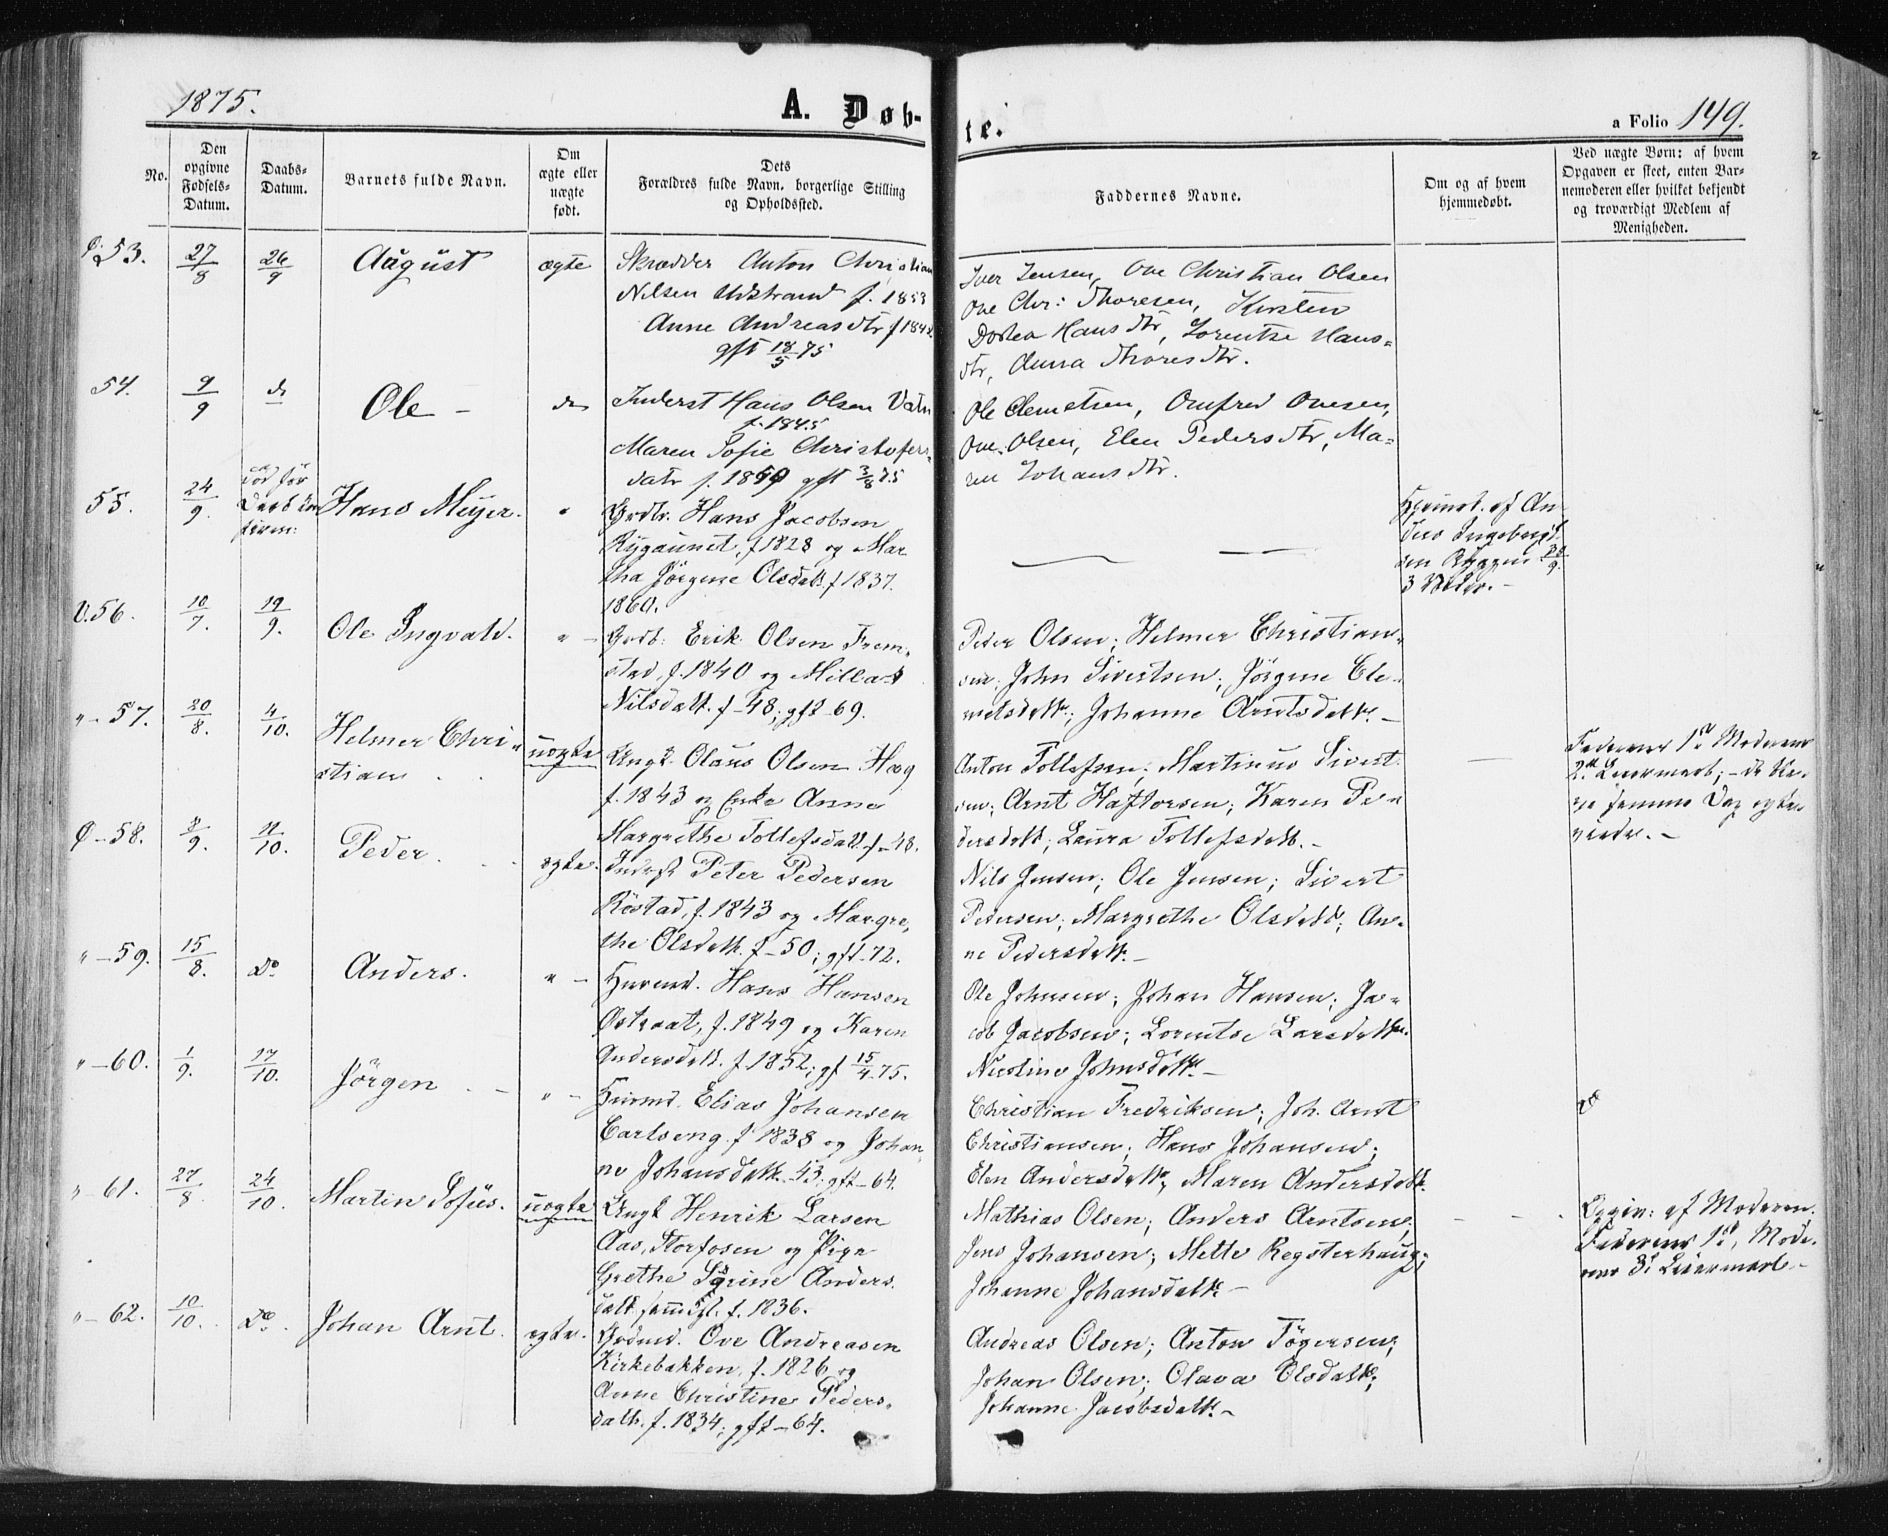 1875.
A. Døb-
te.
a Folio 149.
No.
Den
opgivne
Fødsels-
Datum.
Daabs-
Datum.
Barnets fulde Navn.
Om
ægte eller
uægte
født.
Dets
Forældres fulde Navn, borgerlige Stilling
og Opholdssted.
Faddernes Navne.
Om og af hvem
hjemmedøbt.
Ved uægte Børn: af hvem
Opgaven er skeet, enten Bar-
nemoderen eller hvilket bekjendt
og troværdigt Medlem af
Menigheden.
Ø. 53. 27/8 26/9 August ægte
Skrædder Anton Christian
Nilsen Udstrand f. 1853
Anne Andreasdtr f 1842
gft 18/5 75
Iver Jensen, Ove Christian Olsen
Ove Chr: Thoresen, Kirsten
Dortea Hansdtr, Lorentse Hans-
dtr, Anna Thoresdtr.
54. 9/9 do Ole - do
Inderst Hans Olsen Vatn
f. 1845
Maren Sofie Christofers-
datr f. 1850 gft 3/8 75
Ole Clemetsen, Onfred Ovesen,
Ove Olsen, Elen Pedersdtr, Ma-
ren Johansdtr.
55. 24/9. død før
Daab kon
firm: Hans Meyer. "
Grdbr. Hans Jacobsen
Rygaunet, f 1828 og Mar
tha Jörgine Olsdatt. f 1837.
1860.
Hjemmed. af An-
ders Ingebrigt-
sen Ryggen 28/9.
3 Vidner. -
V. 56. 10/7. 19/9. Ole Ingvald. " -
Grdb: Erik Olsen Frem-
stad, f. 1840 og Milla
Nilsdatt. f - 48; gft - 69.
Peder Olsen; Helmer Christian-
sen; John Sivertsen; Jörgine Cle-
metsdatt.; Johanne Arntsdatt. -
" - 57. 20/8. 4/10. Helmer Chri-
stian uægte
Ungk. Olaus Olsen Hæg
f. 1843 og Enke Anne
Margrethe Tollefsdatt f - 48.
Anton Tollefsen; Martinus Sivert
sen; Arnt Haftorsen; Karen Pe-
dersdatt; Laura Tollefsdatt. -
Faderens 1st Moderens
2det Leiermaal; - do
samme Dag
Ø - 58. 8/9. 11/10. Peder. ægte.
Inderst Peter Pedersen
Röstad, f. 1843 og Margre-
the Olsdatt. f - 50; gft - 72.
Nils Jensen; Ole Jensen; Sivert
Pedersen; Margrethe Olsdatt; An-
ne Pedersdatt. -
" - 59. 15/8. Do Anders. " -
Husmd. Hans Hansen
Østraat, f. 1849 og Karen
Andersdatt. f. 1852; gf 15/4 75.
Ole Johnsen; Johan Hansen; Ja-
cob Jacobsen; Lorentse Larsdatt.
Nicoline Johnsdatt. -
" - 60. 1/9. 17/10. Jörgen - " -
Husmd. Elias Johansen
Carlseng. f 1838 og Johan-
ne Johansdatt. - 43; gft - 64.
Christian Fredriksen; Joh. Arnt
Christiansen; Hans Johansen;
Elen Andersdatt; Maren Andersdatt.
" - 61. 27/8 24/10. Martin Sofus. uægte
Ungk Henrik Larsen
Aas, Storfosen og Pige
Grethe Sørine Anders
datt. f. 1836.
Mathias Olsen; Anders Arntsen,
Jens Johansen; Mette Regsterhaug;
Johanne Johansdatt. -
Opgiv: af Moderen.
Faderens 1st, Mode-
rens 3d Leiermaal. -
" - 62. 10/10. Do. Johan Arnt. ægte.
Grdmd. Ove Andreasen
Kirkebakken, f. 1826 og
Anne Christine Peders-
datt. f. 1834; gft - 64.
Andreas Olsen; Anton Tögersen;
Johan Olsen; Olava Olsdatt;
Johanne Jacobsdatt. -